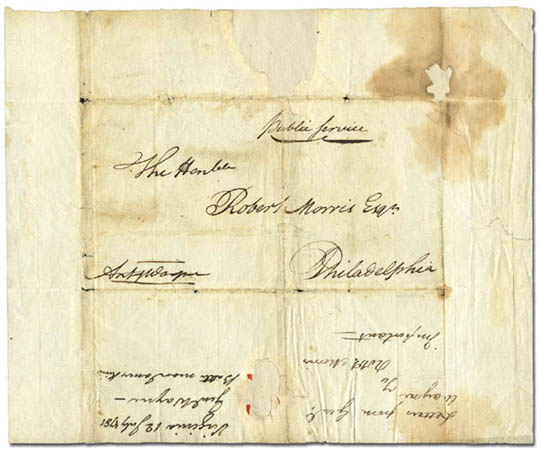 Public Service
The Honble
Robert Morris Esqr.
Anty Wayne
Philadelphia
Letters from Genl.
Wayne To
Robt Morris
Important =
Virginia 12 July 1781
Genl Wayne —
near